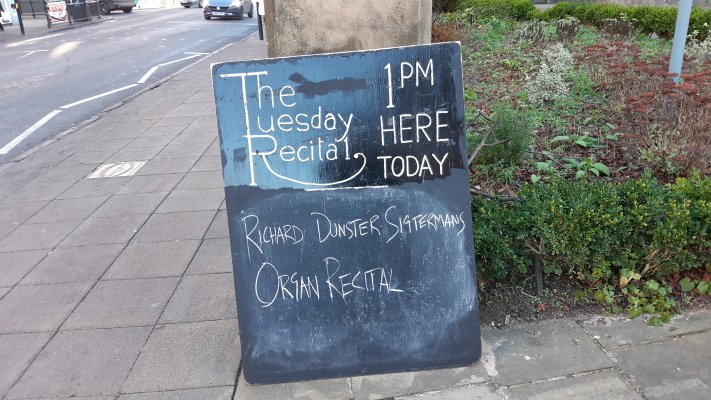 The 1PM
Tuesday HERE
Recital TODAY
RICHARD DUNSTER SIGTERMANS
ORGAN RECITAL